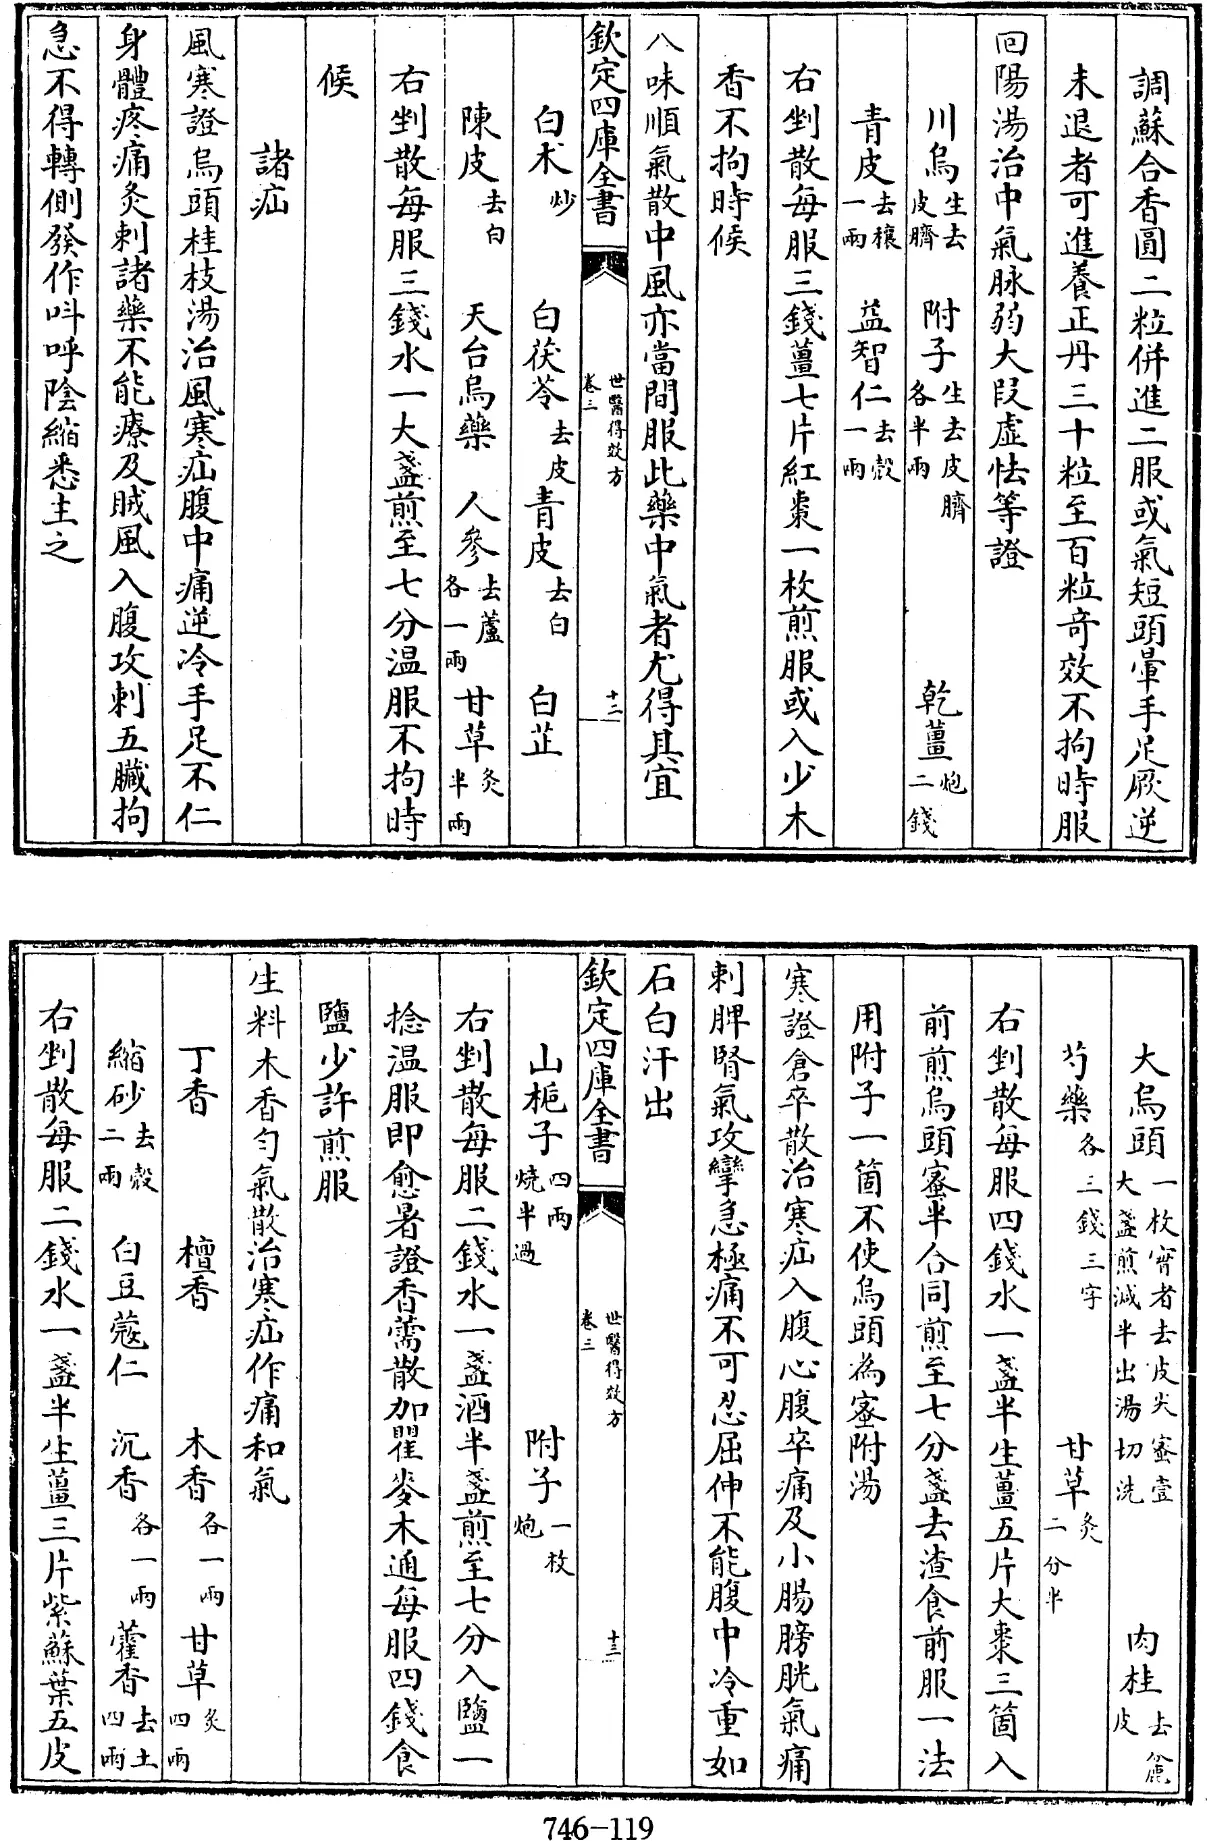 調蘇合香圓二粒併進二服或氣短頭暈手足厥逆
未退者可進養正丹三十粒至百粒奇效不拘時服
回陽湯治中氣脉弱大段虛怯等證
川烏生去皮臍 附子生去皮臍各半兩 乾薑炮二錢
青皮去穰一兩 益智仁去殼一兩
右剉散每服三錢薑七片紅棗一枚煎服或入少木
香不拘時候
八味順氣散中風亦當間服此藥中氣者尤得其宜
欽定四庫全書 世醫得效方卷三 十二
白朮炒 白茯苓去皮 青皮去白 白芷
陳皮去白 天台烏藥 人參去蘆各一兩 甘草炙半兩
右剉散每服三錢水一大盞煎至七分温服不拘時
候
諸疝
風寒證烏頭桂枝湯治風寒疝腹中痛逆冷手足不仁
身體疼痛灸刺諸藥不能療及賊風入腹攻刺五臟拘
急不得轉側發作呌呼陰縮悉主之
大烏頭一枚實者去皮尖蜜壹大盞煎減半出湯切洗 肉桂去麄皮
芍藥各三錢三字 甘草炙二分半
右剉散每服四錢水一盞半生薑五片大棗三箇入
前煎烏頭蜜半合同煎至七分盞去渣食前服一法
用附子一箇不使烏頭為蜜附湯
寒證倉卒散治寒疝入腹心腹卒痛及小腸膀胱氣痛
刺脾腎氣攻攣急極痛不可忍屈伸不能腹中冷重如
石白汗出
欽定四庫全書 世醫得效方卷三 十三
山梔子四兩燒半過 附子一枚炮
右剉散每服二錢水一盞酒半盞煎至七分入鹽一
捻温服即愈暑證香薷散加瞿麥木通每服四錢食
鹽少許煎服
生料木香勻氣散治寒疝作痛和氣
丁香 檀香 木香各一兩 甘草炙四兩
縮砂去殼二兩 白豆蔻仁 沉香各一兩 藿香去土四兩
右剉散每服二錢水一盞半生薑三片紫蘇葉五皮
746-119